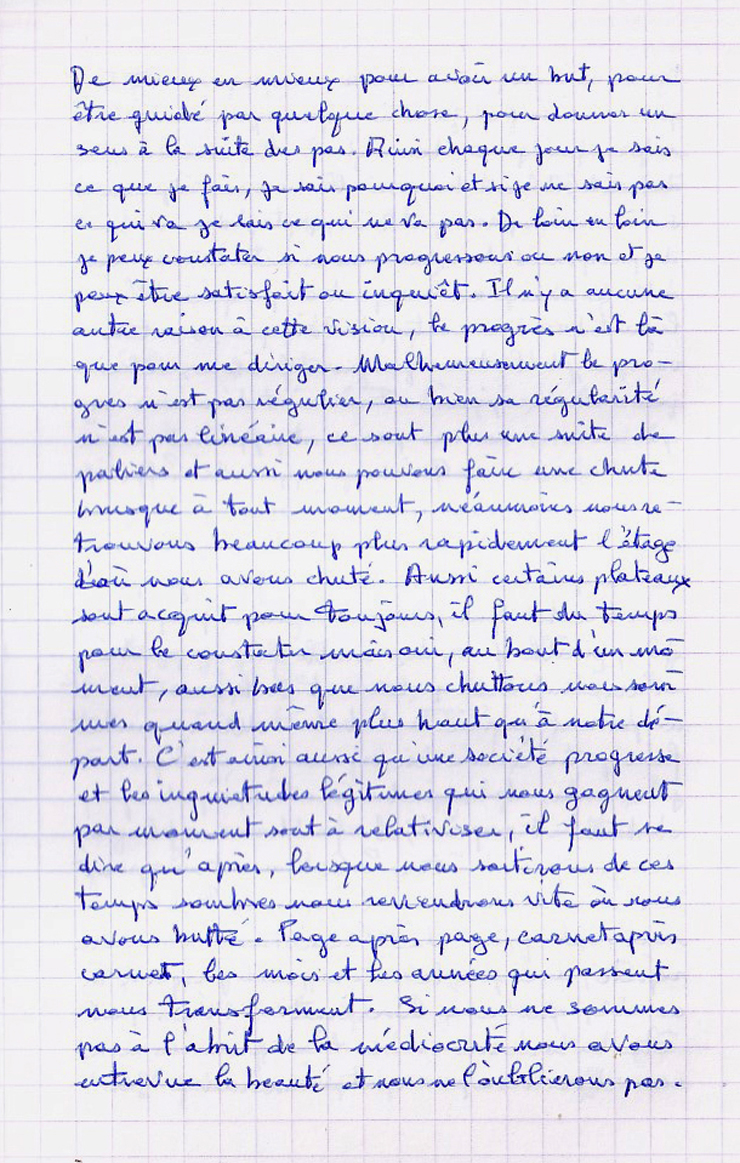 De mieux en mieux pour avoir un but, pour
être guidé par quelque chose, pour donner un
sens à la suite des pas. Ainsi chaque jour je sais
ce que je fais, je sais pourquoi et si je ne sais pas
ce qui va je sais ce qui ne va pas. De loin en loin
je peux constater si nous progressons ou non et je
peux être satisfait ou inquièt. Il n'y a aucune
autre raison à cette vision, le progrès n'est là
que pour me diriger. Malheureusement le pro-
grès n'est pas régulier, ou bien sa régularité
n'est pas linéaire, ce sont plus une suite de
paliers et aussi nous pouvons faire une chute
brusque à tout moment, néanmoins nous re-
trouvons beaucoup plus rapidement l'étage
d'où nous avons chuté. Aussi certains plateaux
sont acquit pour toujours, il faut du temps
pour le constater mais oui, au bout d'un mo
ment, aussi bas que nous chuttons nous som
mes quand même plus haut qu'à notre dé-
part. C'est ainsi aussi qu'une société progresse
et les inquietudes légitimes qui nous gagnent
par moment sont à relativiser, il faut se
dire qu'après, lorsque nous sortirons de ces
temps sombres nous reviendrons vite où nous
avons butté. Page après page, carnet après
carnet, les mois et les années qui passent
nous transforment. Si nous ne sommes
pas à l'abrit de la médiocrité nous avons
entrevue la beauté et nous ne l'oublierons pas.